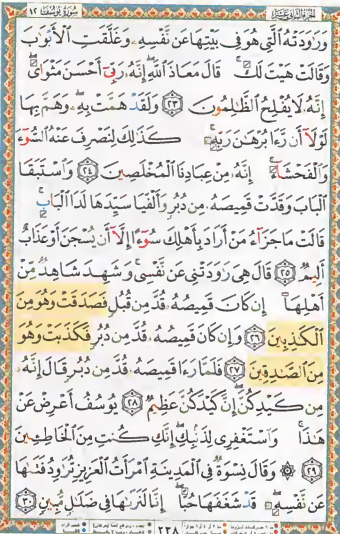 الجزء الثاني عشر سورة يوسف ١٢
وَرَٰوَدَتْهُ ٱلَّتِى هُوَ فِى بَيْتِهَا عَن نَّفْسِهِۦ وَغَلَّقَتِ ٱلْأَبْوَٰبَ
وَقَالَتْ هَيْتَ لَكَ ۚ قَالَ مَعَاذَ ٱللَّهِ ۖ إِنَّهُۥ رَبِّىٓ أَحْسَنَ مَثْوَاىَ ۖ
إِنَّهُۥ لَا يُفْلِحُ ٱلظَّٰلِمُونَ ٢٣ وَلَقَدْ هَمَّتْ بِهِۦ ۖ وَهَمَّ بِهَا
لَوْلَآ أَن رَّءَا بُرْهَٰنَ رَبِّهِۦ ۚ كَذَٰلِكَ لِنَصْرِفَ عَنْهُ ٱلسُّوٓءَ
وَٱلْفَحْشَآءَ ۚ إِنَّهُۥ مِنْ عِبَادِنَا ٱلْمُخْلَصِينَ ٢٤ وَٱسْتَبَقَا
ٱلْبَابَ وَقَدَّتْ قَمِيصَهُۥ مِن دُبُرٍ وَأَلْفَيَا سَيِّدَهَا لَدَا ٱلْبَابِ ۚ
قَالَتْ مَا جَزَآءُ مَنْ أَرَادَ بِأَهْلِكَ سُوٓءًا إِلَّآ أَن يُسْجَنَ أَوْ عَذَابٌ
أَلِيمٌ ٢٥ قَالَ هِىَ رَٰوَدَتْنِى عَن نَّفْسِى ۚ وَشَهِدَ شَاهِدٌ مِّنْ
أَهْلِهَآ إِن كَانَ قَمِيصُهُۥ قُدَّ مِن قُبُلٍ فَصَدَقَتْ وَهُوَ مِنَ
ٱلْكَٰذِبِينَ ٢٦ وَإِن كَانَ قَمِيصُهُۥ قُدَّ مِن دُبُرٍ فَكَذَبَتْ وَهُوَ
مِنَ ٱلصَّٰدِقِينَ ٢٧ فَلَمَّا رَءَا قَمِيصَهُۥ قُدَّ مِن دُبُرٍ قَالَ إِنَّهُۥ
مِن كَيْدِكُنَّ ۖ إِنَّ كَيْدَكُنَّ عَظِيمٌ ٢٨ يُوسُفُ أَعْرِضْ عَنْ
هَٰذَا ۚ وَٱسْتَغْفِرِى لِذَنۢبِكِ ۖ إِنَّكِ كُنتِ مِنَ ٱلْخَاطِـِٔينَ
٢٩ ۞ وَقَالَ نِسْوَةٌ فِى ٱلْمَدِينَةِ ٱمْرَأَتُ ٱلْعَزِيزِ تُرَٰوِدُ فَتَىٰهَا
عَن نَّفْسِهِۦ ۖ قَدْ شَغَفَهَا حُبًّا ۖ إِنَّا لَنَرَىٰهَا فِى ضَلَٰلٍ مُّبِينٍ ٣٠
٢٣٨